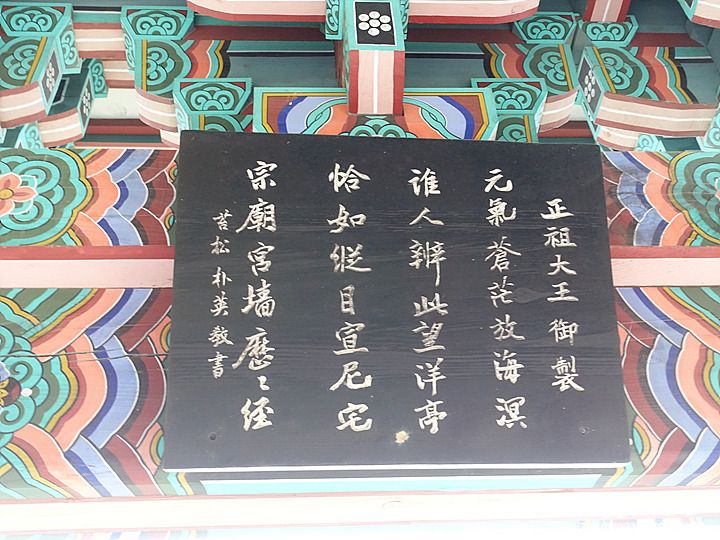 正祖大王御製
元氣蒼茫放海溟
誰人辨此望洋亭
恰如縱目宣尼宅
宗廟宮墻歷〻經
苔松 朴英敎書